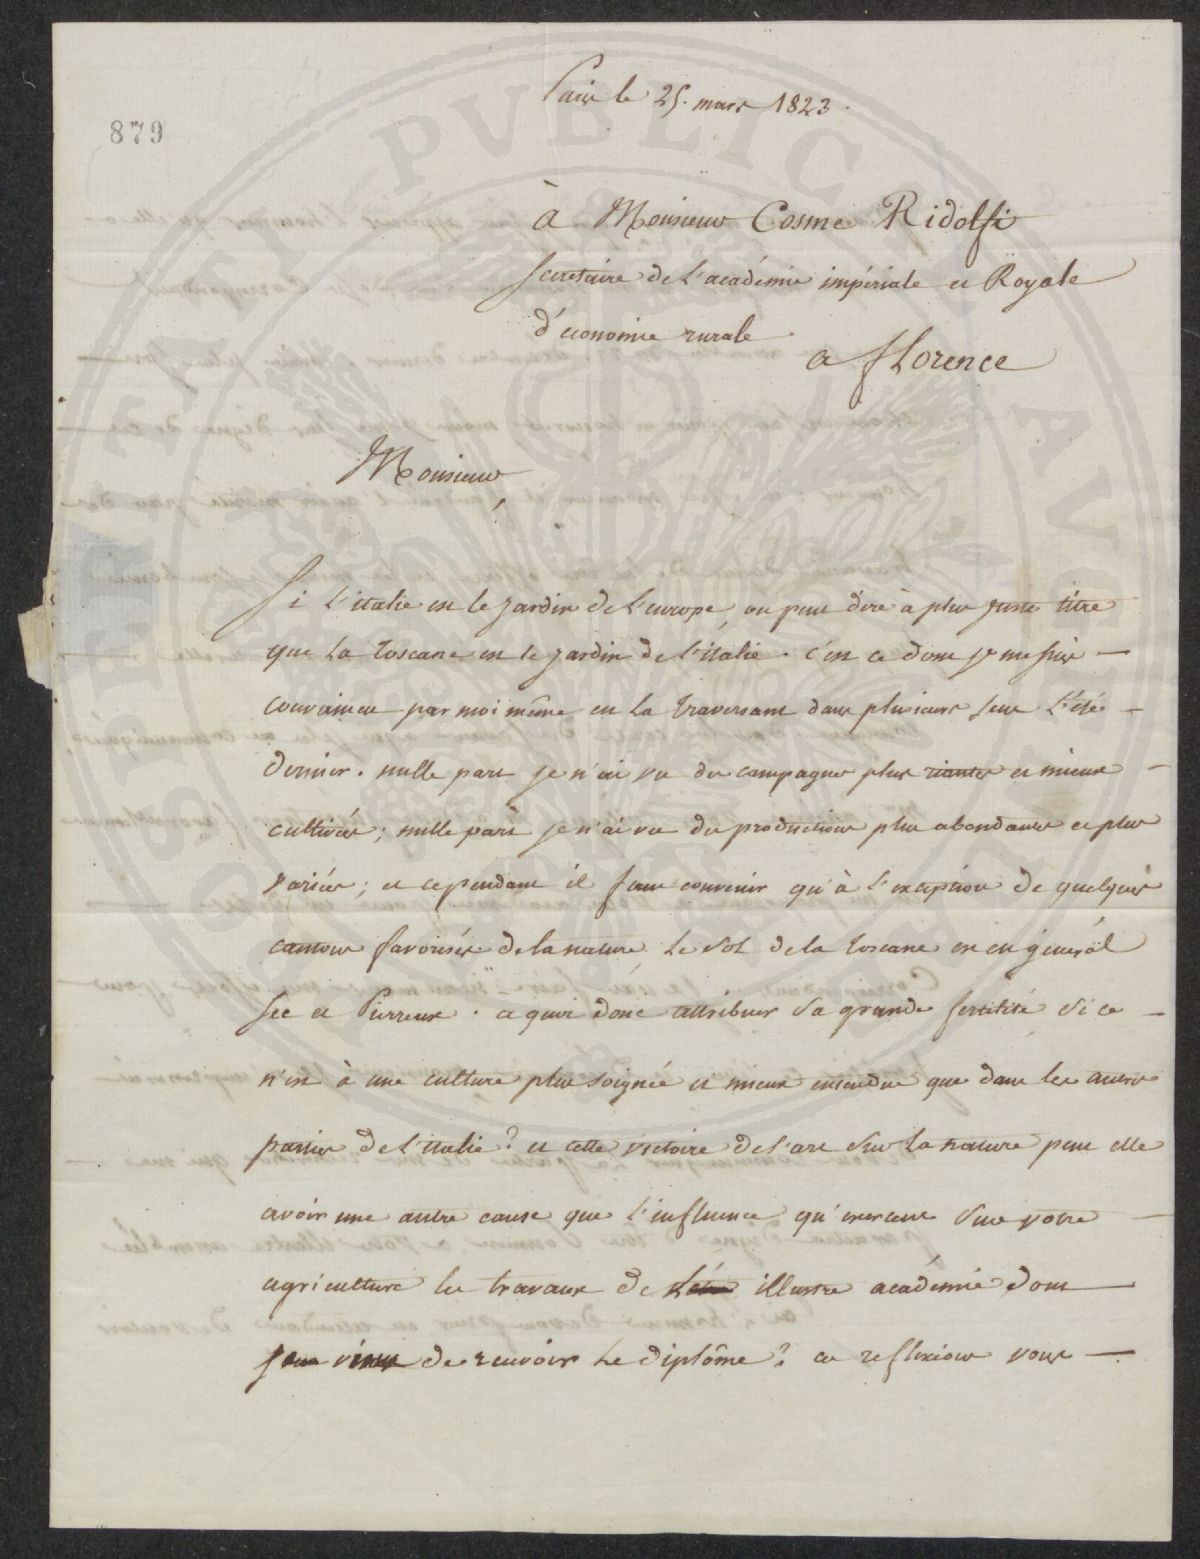 Paris le 25. mars 1823.
879
à Monsieur Cosme Ridolfi
secretaire de l'académie impériale et Royale
d'économie rurale
a florence
Monsieur,
Si l'italie est le jardin de l'europe, on peut dire à plus juste titre
que la toscane est le jardin de l'italie. c'est ce dont je me suis
convaincu par moi même en la traversant dans plusieurs sens l'été
dernier. nulle part je n'ai vu des campagnes plus riantes et mieux
cultivées; nulle part je n'ai vu des productions plus abondantes et plus
variées; et cependant il faut convenir qu'à l'exception de quelques
cantons favorisés de la nature le sol de la toscane est en général
sec et Pierreux. a quoi donc attribuer sa grande fertilité si ce
n'est à une culture plus soignée et mieux entendue que dans les autres
parties de l'italie? et cette victoire de l'art sur la nature peut elle
avoir une autre cause que l'influence qu'exercent sur votre
agriculture les travaux de illustre académie dont
je viens de recevoir le diplôme? ces reflexions vous